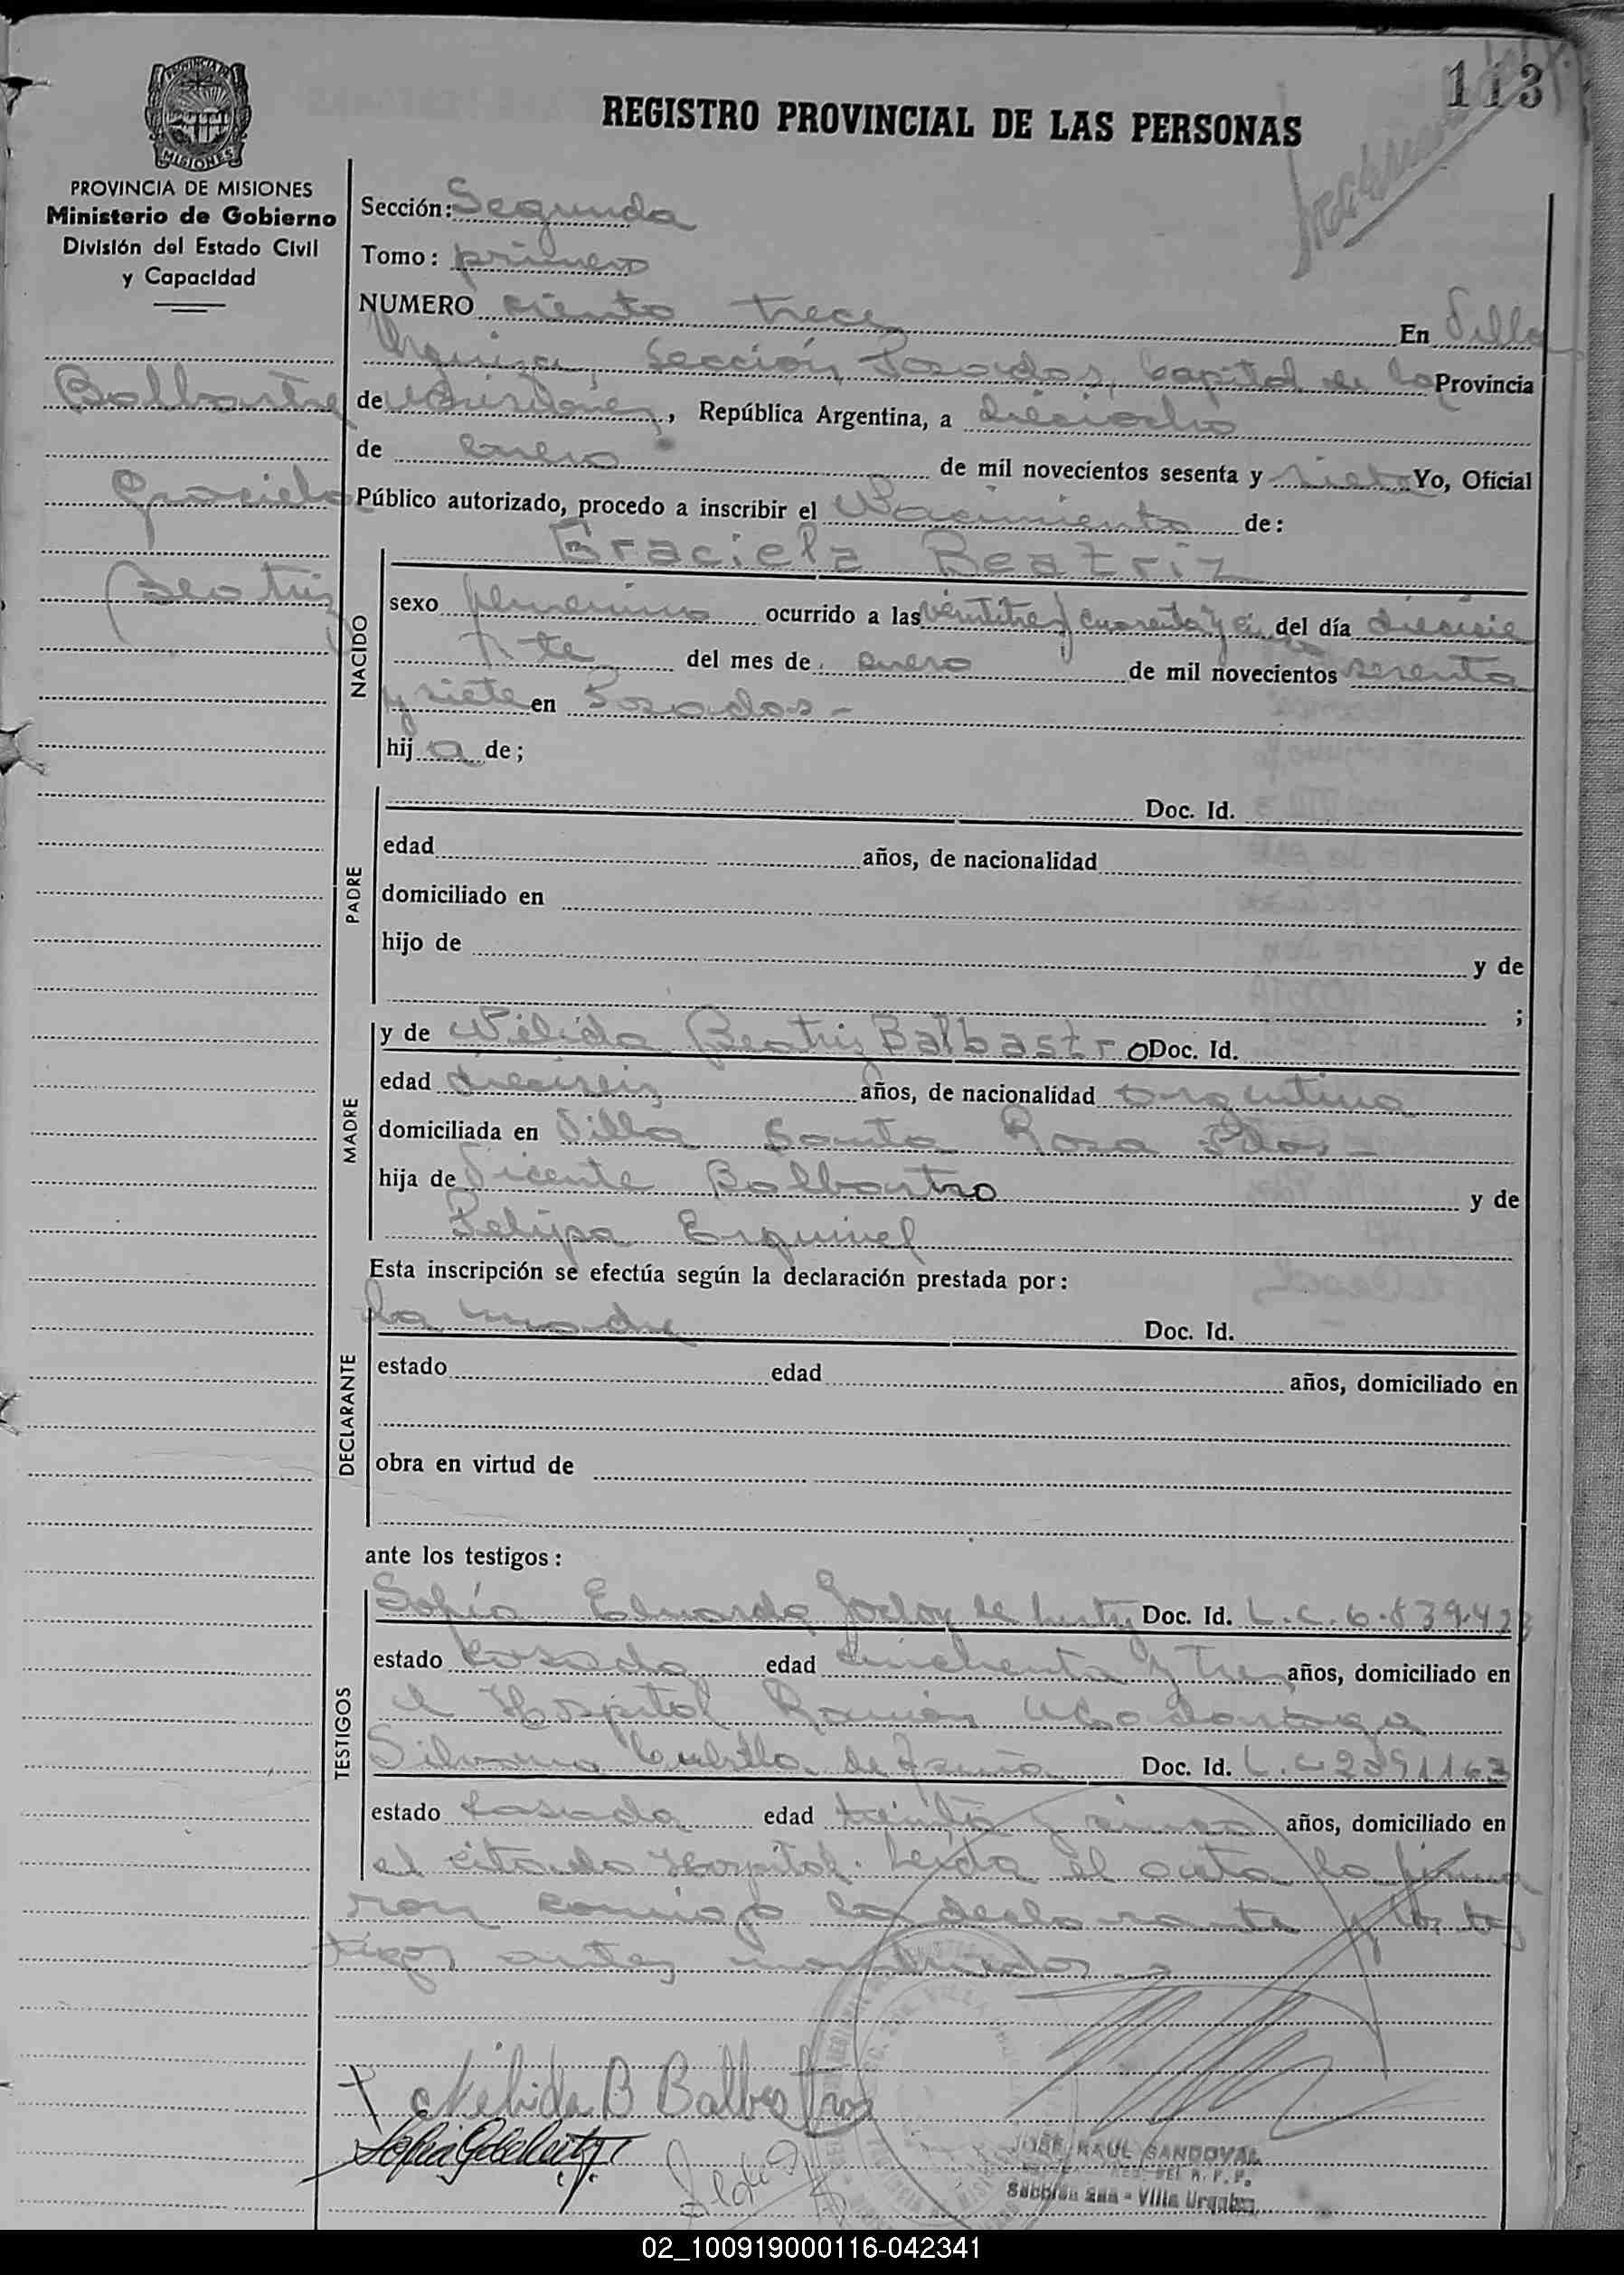 113
REGISTRO PROVINCIAL DE LAS PERSONAS
PROVINCIA DE MISIONES
MISIONES
PROVINCIA DE MISIONES
Ministerio de Gobierno
División del Estado Civil
y Capacidad
Balbastro
Graciela
Beatriz
Sección: Segunda
Tomo: primero
NUMERO ciento trece En Villa
Urquiza, Sección Posadas, Capital de la Provincia
de Misiones, República Argentina, a dieciocho
de enero de mil novecientos sesenta y siete Yo, Oficial
Público autorizado, procedo a inscribir el Nacimiento de:
NACIDO
Graciela Beatriz
sexo femenino ocurrido a las veintitres cuarenta y cinco del día diecisie
te del mes de enero de mil novecientos sesenta
y siete en Posadas -
hij a de;
PADRE
Doc. Id.
edad años, de nacionalidad
domiciliado en
hijo de y de
;
MADRE
y de Nélida Beatriz Balbastro Doc. Id.
edad dieciseis años, de nacionalidad argentina
domiciliada en Villa Santa Rosa Pdas -
hija de Vicente Balbastro y de
Felipa Esquivel
Esta inscripción se efectúa según la declaración prestada por:
DECLARANTE
la madre Doc. Id.
estado edad años, domiciliado en
obra en virtud de
ante los testigos:
TESTIGOS
Sofía Eduarda Godoy de Doc. Id. L.C. 6.839.423
estado casada edad cincuenta y tres años, domiciliado en
el Hospital Ramón Madariaga
Silvana Cubilla de Doc. Id. L.C 2391163
estado casada edad treinta y cinco años, domiciliado en
el citado Hospital. Leida el acta la firma
ron conmigo la declarante y los tes
tigos antes nombrados -
Nélida B Balbastro
JOSE RAUL SANDOVAL
DEL R. P. P.
Sección 2da - Villa Urquiza
02_100919000116-042341